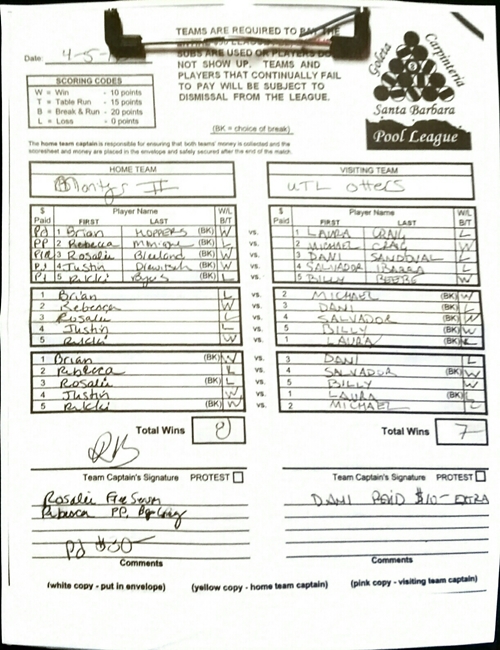 TEAMS ARE REQUIRED TO PAY THE
SUBS ARE USED OR PLAYERS DO
NOT SHOW UP. TEAMS AND
PLAYERS THAT CONTINUALLY FAIL
TO PAY WILL BE SUBJECT TO
DISMISSAL FROM THE LEAGUE.
Goleta Carpinteria
Santa Barbara
Pool League
Date: 4-5-
SCORING CODES
W = Win - 10 points
T = Table Run - 15 points
B = Break & Run - 20 points
L = Loss - 0 points
(BK = choice of break)
The home team captain is responsible for ensuring that both teams' money is collected and the
scoresheet and money are placed in the envelope and safely secured after the end of the match.
HOME TEAM VISITING TEAM
Montys II UTL Otters
$ Paid Player Name FIRST LAST W/L B/T $ Paid Player Name FIRST LAST W/L B/T
Pd 1 Brian HOPPERS (BK) W vs. 1 LAURA CRAIG L
PP 2 Rebecca L vs. 2 MICHAEL CRAIG W
3 Rosalie (BK) W vs. 3 DANI SANDOVAL L
Pd 4 Justin W vs. 4 SALVADOR IBARRA L
Pd 5 Rikki (BK) L vs. 5 BILLY BEEBE W
1 Brian L vs. 2 MICHAEL (BK) W
2 Rebecca W vs. 3 DANI (BK) L
3 Rosalie L vs. 4 SALVADOR (BK) W
4 Justin L vs. 5 BILLY (BK) W
5 Rikki W vs. 1 LAURA (BK) L
1 Brian (BK) W vs. 3 DANI L
2 Rebecca L vs. 4 SALVADOR (BK) W
3 Rosalie (BK) L vs. 5 BILLY W
4 Justin W vs. 1 LAURA (BK) L
5 Rikki (BK) W vs. 2 MICHAEL L
Total Wins 8 Total Wins 7
RB
Team Captain's Signature PROTEST Team Captain's Signature PROTEST
Rosalie Free Season DANI PAID $10- EXTRA
Rebecca PP.
Pd $30-
Comments Comments
(white copy - put in envelope) (yellow copy - home team captain) (pink copy - visiting team captain)